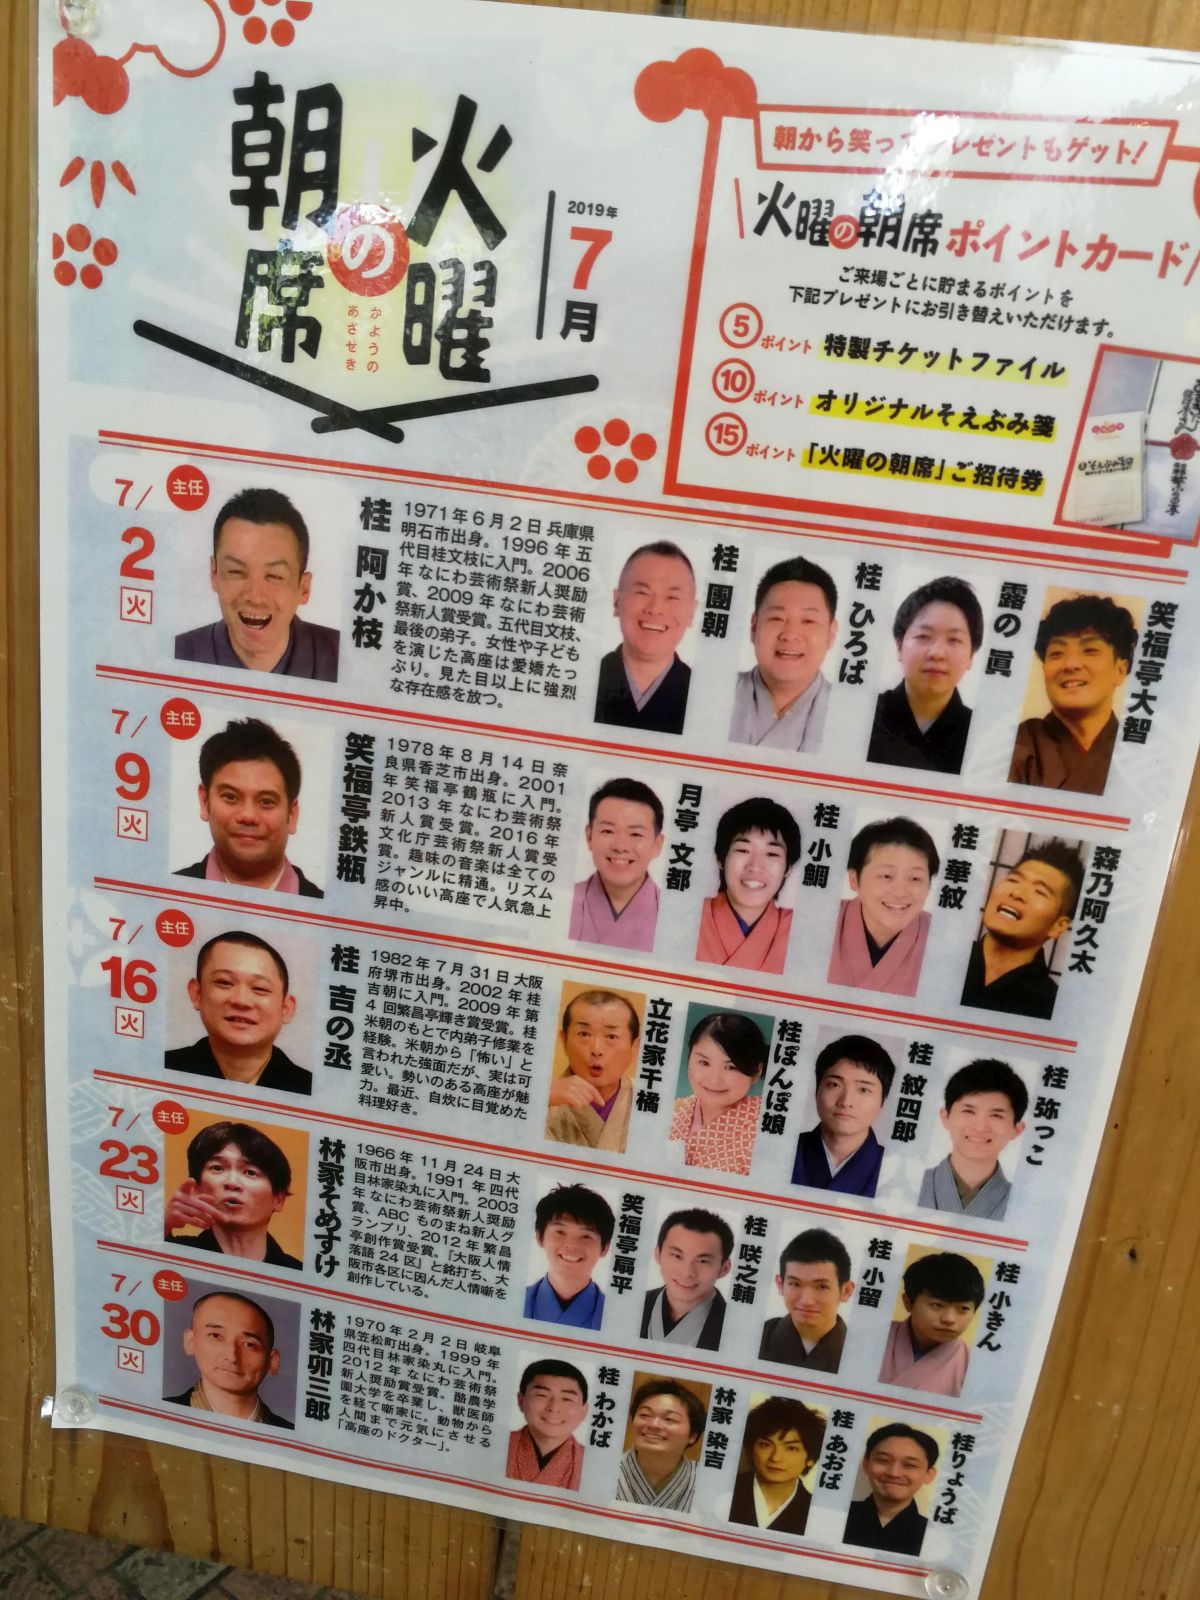 火曜の朝席
かようの
あさせき
2019年
7月
朝から笑ってプレゼントもゲット!
火曜の朝席ポイントカード
ご来場ごとに貯まるポイントを
下記プレゼントにお引き替えいただけます。
5ポイント 特製チケットファイル
10ポイント オリジナルそえぶみ箋
15ポイント 「火曜の朝席」ご招待券
7/2 火
主任
桂 阿か枝
1971年6月2日兵庫県
明石市出身。1996年五
代目桂文枝に入門。2006
年なにわ芸術祭新人奨励
賞、2009年なにわ芸術
祭新人賞受賞。五代目文枝、
最後の弟子。女性や子ども
を演じた高座は愛嬌たっ
ぷり。見た目以上に強烈
な存在感を放つ。
桂 團朝
桂 ひろば
露の 眞
笑福亭大智
7/9 火
主任
笑福亭鉄瓶
1978年8月14日奈
良県香芝市出身。2001
年笑福亭鶴瓶に入門。
2013年なにわ芸術祭
新人賞受賞。2016年
文化庁芸術祭新人賞受
賞。趣味の音楽は全ての
ジャンルに精通。リズム
感のいい高座で人気急上
昇中。
月亭 文都
桂 小鯛
桂 華紋
森乃阿久太
7/16 火
主任
桂 吉の丞
1982年7月31日大阪
府堺市出身。2002年桂
吉朝に入門。2009年第
4回繁昌亭輝き賞受賞。桂
米朝のもとで内弟子修業を
経験。米朝から「怖い」と
言われた強面だが、実は可
愛い。勢いのある高座が魅
力。最近、自炊に目覚めた
料理好き。
立花家千橘
桂ぽんぽ娘
桂 紋四郎
桂 弥っこ
7/23 火
主任
林家そめすけ
1966年11月24日大
阪市出身。1991年四代
目林家染丸に入門。2003
年なにわ芸術祭新人奨励
賞、ABCものまね新人グ
ランプリ、2012年繁昌
亭創作賞受賞。『大阪人情
落語24区』と銘打ち、大
阪市各区に因んだ人情噺を
創作している。
笑福亭扇平
桂 咲之輔
桂 小留
桂 小きん
7/30 火
主任
林家卯三郎
1970年2月2日岐阜
県笠松町出身。1999年
四代目林家染丸に入門。
2012年なにわ芸術祭
新人奨励賞受賞。酪農学
園大学を卒業し、獣医師
を経て噺家に。動物から
人間まで元気にさせる
「高座のドクター」。
桂 わかば
林家 染吉
桂 あおば
桂りょうば